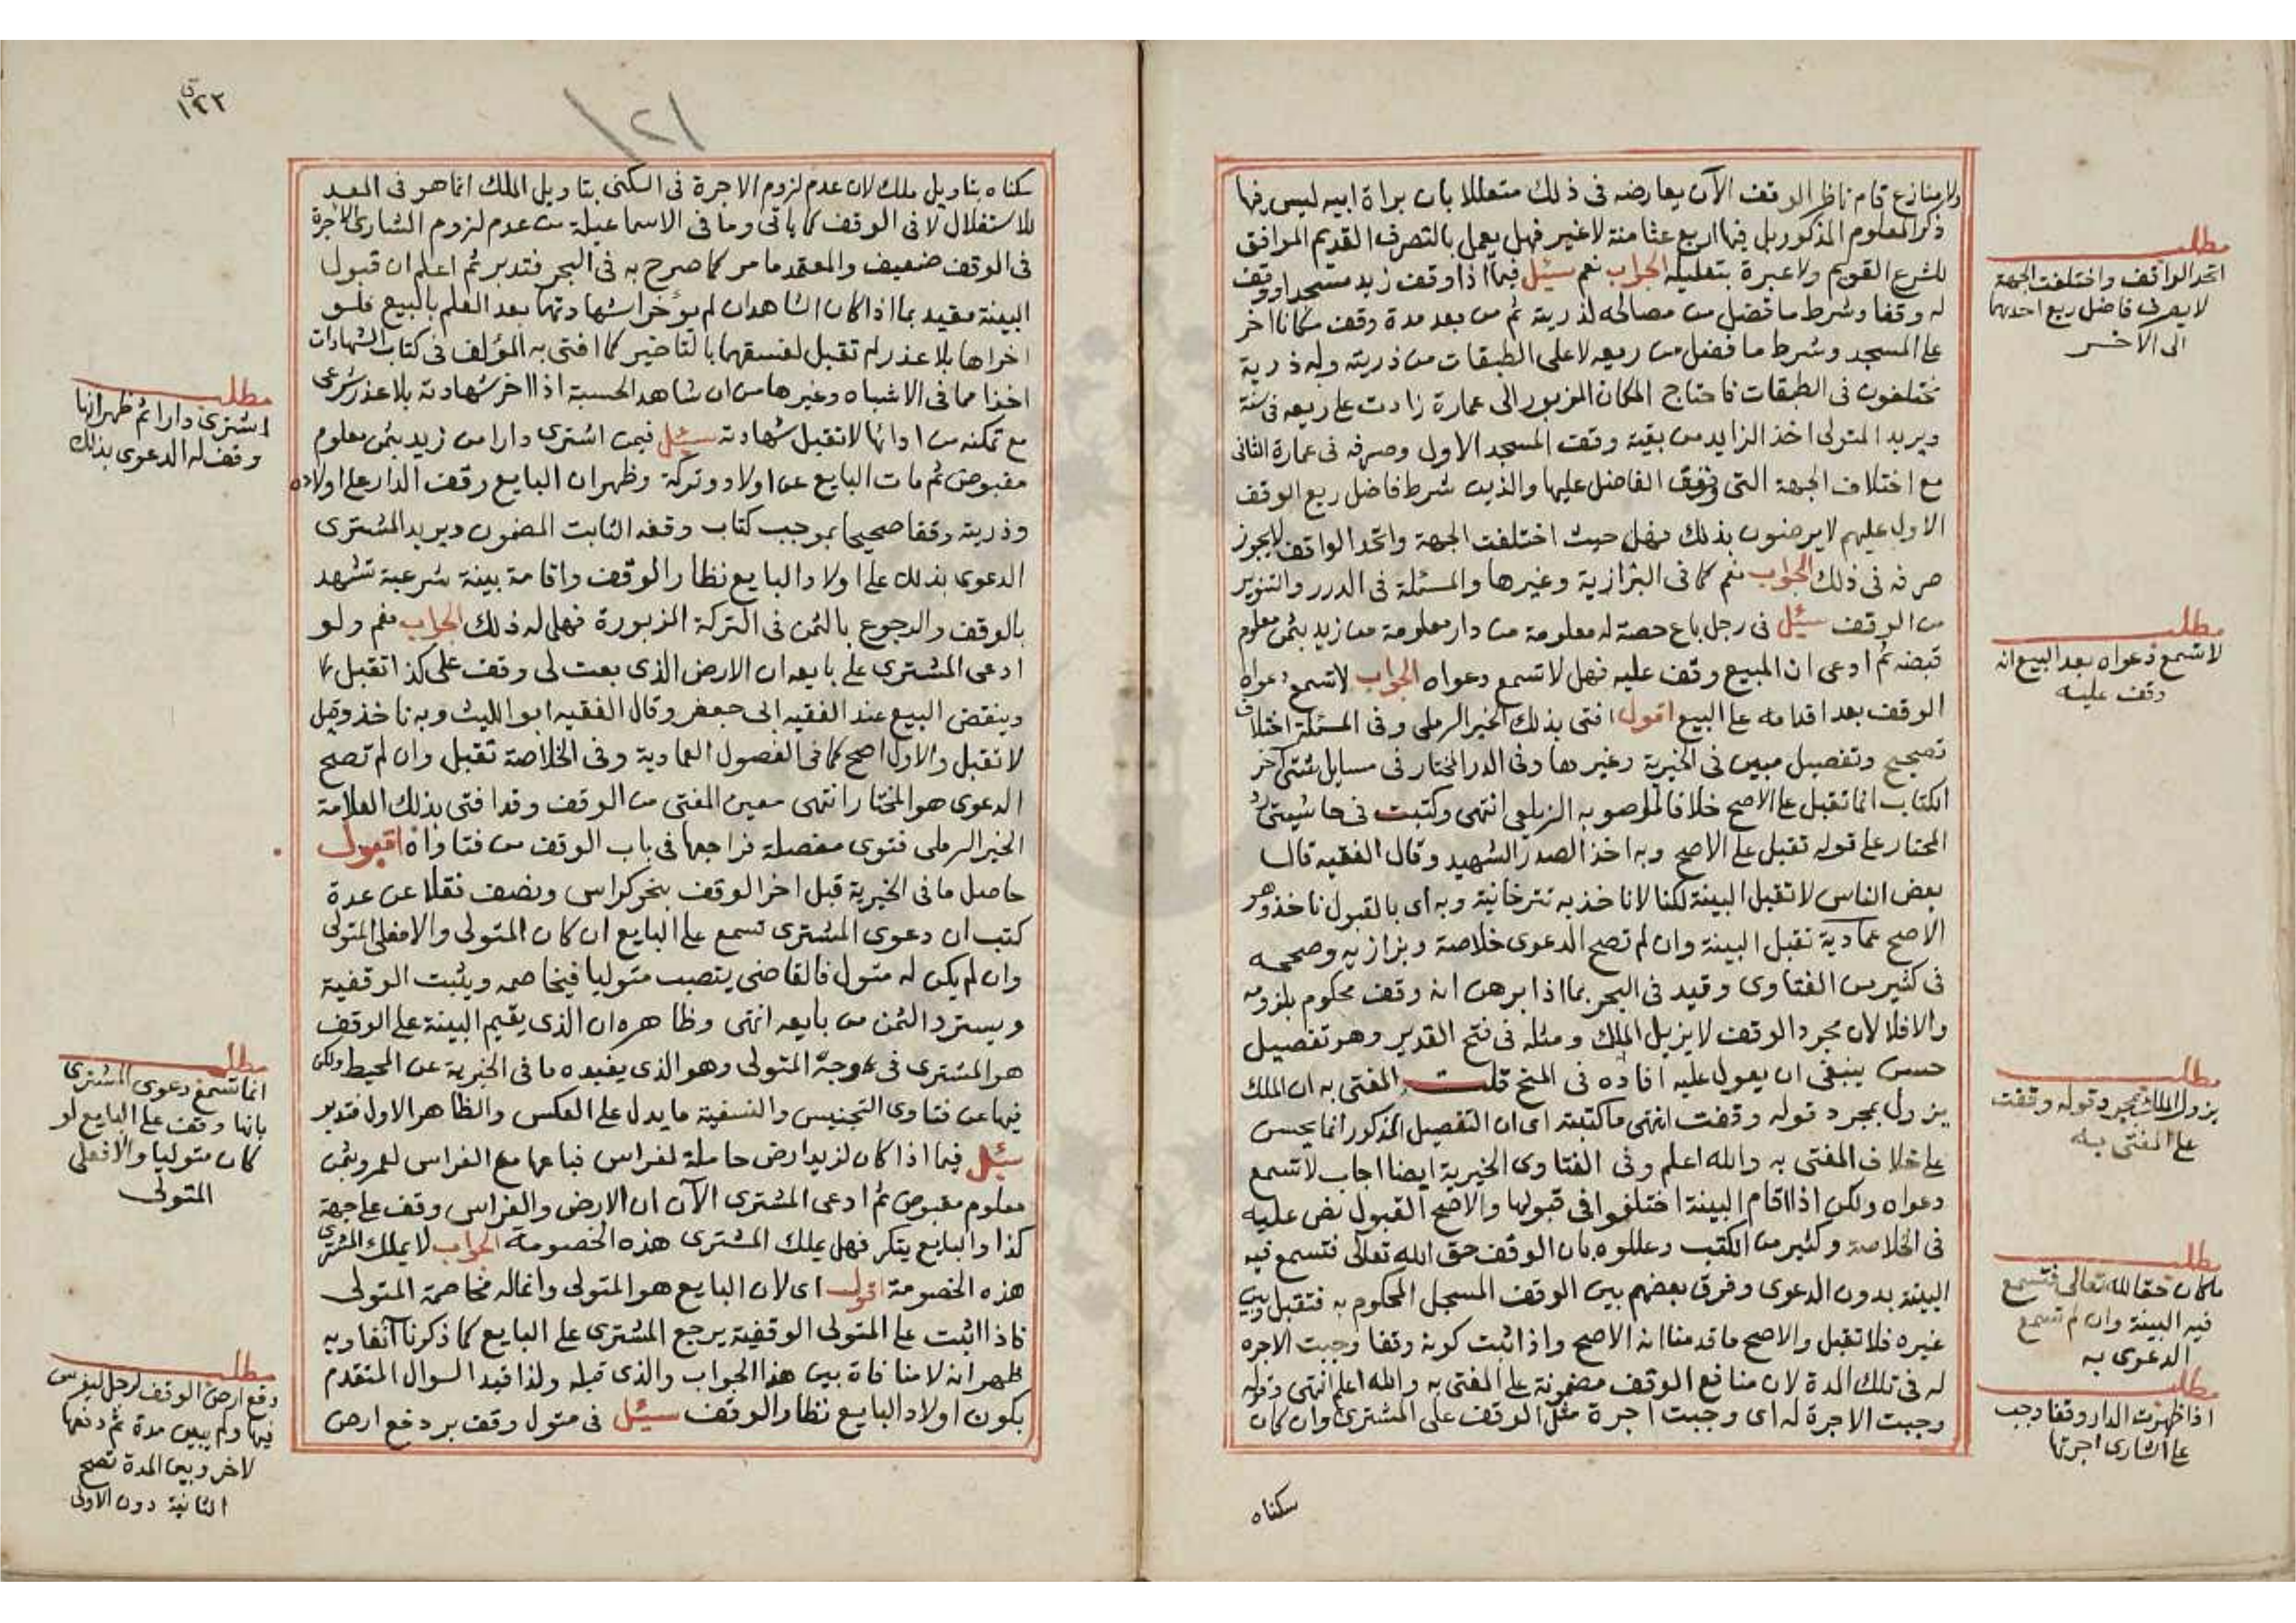 ولا منازع قام ناظر الوقف الآن يعارضه في ذلك متعللا بان براة ابيه ليس فيها
ذكر المعلوم المذكور بل فيها اربع عثامنة لا غير فهل يعمل بالتصرف القديم الموافق
للشرع القويم ولا عبرة بتعليله الجواب نعم سئل فيما اذا وقف زيد مسجدا ووقف
له وقفا وشرط ما فضل من مصالحه لذريته ثم من بعد مدة وقف مكانا اخر
على المسجد وشرط ما فضل من ريعه لاعلى الطبقات من ذريته وله ذرية
مختلفون في الطبقات فاحتاج المكان المزبور الى عمارة زادت على ريعه في سنة
ويريد المتولي اخذ الزايد من بقية وقف المسجد الاول وصرفه في عمارة الثاني
مع اختلاف الجهة التي وقف الفاضل عليها والذين شرط فاضل ريع الوقف
الاول عليهم لا يرضون بذلك فهل حيث اختلفت الجهة واتحد الواقف لا يجوز
صرفه في ذلك الجواب نعم كما في البزازية وغيرها والمسئلة في الدرر والتنوير
من الوقف سئل في رجل باع حصة له معلومة من دار معلومة من زيد بثمن معلوم
قبضه ثم ادعى ان المبيع وقف عليه فهل لا تسمع دعواه الجواب لا تسمع دعواه
الوقف بعد اقدامه على البيع اقول افتى بذلك الخير الرملي وفي المسئلة اختلاف
تصحيح وتفصيل مبين في الخيرية وغيرها وفي الدر المختار في مسايل شتى آخر
الكتاب انما تقبل على الاصح خلافا لما صوبه الزيلعي انتهى وكتبت في حاشيتي رد
المحتار على قوله تقبل على الاصح وبه اخذ الصدر الشهيد وقال الفقيه قال
بعض الناس لا تقبل البينة لكنا لا ناخذ به تترخانية وبه اي بالقبول ناخذ وهو
الاصح عمادية تقبل البينة وان لم تصح الدعوى خلاصة وبزازيه وصححه
في كثير من الفتاوى وقيد في البحر بما اذا برهن انه وقف محكوم بلزومه
والا فلا لان مجرد الوقف لا يزيل الملك ومثله في فتح القدير وهو تفصيل
حسن ينبغي ان يعول عليه افاده في المنح قلت المفتى به ان الملك
يزول بمجرد قوله وقفت انتهى ما كتبته اي ان التفصيل المذكور انما يحسن
على خلاف المفتى به والله اعلم وفي الفتاوى الخيرية ايضا اجاب لا تسمع
دعواه ولكن اذا اقام البينة اختلفوا في قبولها والاصح القبول نص عليه
في الخلاصة وكثير من الكتب وعللوه بان الوقف حق الله تعالى فتسمع فيه
البينة بدون الدعوى وفرق بعضهم بين الوقف المسجل المحكوم به فتقبل وبين
غيره فلا تقبل والاصح ما قدمنا انه الاصح واذا ثبت كونه وقفا وجبت الاجره
له في تلك المدة لان منافع الوقف مضمونة على المفتى به والله اعلم انتهى وقوله
وجبت الاجرة له اي وجبت اجرة مثل الوقف على المشتري وان كان
سكناه
مطلب
اتحد الواقف واختلفت الجهة
لا يصرف فاضل ريع احدهما
الى الاخر
مطلب
لا تسمع دعواه بعد البيع انه
وقف عليه
مطلب
يزول الملك بمجرد قوله وقفت
على المفتى به
مطلب
ما كان حقا لله تعالى فتسمع
فيه البينة وان لم تسمع
الدعوى به
مطلب
اذا ظهرت الدار وقفا وجب
على الشاري اجرتها
١٢٣
١٢١
سكناه بتاويل ملك لان عدم لزوم الاجرة في السكنى بتاويل الملك انما هو في المعد
للاستغلال لا في الوقف كما ياتي وما في الاسماعيلية من عدم لزوم الشاري الاجرة
في الوقف ضعيف والمعتمد ما مر كما صرح به في البحر فتدبر ثم اعلم ان قبول
البينة مقيد بما اذا كان الشاهدان لم يؤخرا شهادتهما بعد العلم بالبيع فلو
اخراها بلا عذر لم تقبل لفسقهما بالتاخير كما افتى به المؤلف في كتاب الشهادات
اخذا مما في الاشباه وغيرها من ان شاهد الحسبة اذا اخر شهادته بلا عذر شرعي
مع تمكنه من ادائها لا تقبل شهادته سئل فيمن اشترى دارا من زيد بثمن معلوم
مقبوض ثم مات البايع عن اولاد وتركة وظهر ان البايع وقف الدار على اولاده
وذريته وقفا صحيحا بموجب كتاب وقفه الثابت المضمون ويريد المشتري
الدعوى بذلك على اولاد البايع نظار الوقف واقامة بينة شرعية تشهد
بالوقف والرجوع بالثمن في التركة المزبورة فهل له ذلك الجواب نعم ولو
ادعى المشتري على بايعه ان الارض الذي بعت لي وقف على كذا تقبل كما
وينقض البيع عند الفقيه ابي جعفر وقال الفقيه ابو الليث وبه ناخذ وقيل
لا تقبل والاول اصح كما في الفصول العمادية وفي الخلاصة تقبل وان لم تصح
الدعوى هو المختار انتهى معين المفتي من الوقف وقد افتى بذلك العلامة
الخير الرملي فتوى مفصلة فراجعها في باب الوقف من فتاواه اقول
حاصل ما في الخيرية قبل اخر الوقف بنحو كراس ونصف نقلا عن عدة
كتب ان دعوى المشتري تسمع على البايع ان كان المتولي والا فعلى المتولي
وان لم يكن له متول فالقاضي ينصب متوليا فيخاصمه ويثبت الوقفية
ويسترد الثمن من بايعه انتهى وظاهره ان الذي يقيم البينة على الوقف
هو المشتري في وجه المتولي وهو الذي يفيده ما في الخيرية عن المحيط ولكن
فيها عن فتاوى التجنيس والنسفية ما يدل على العكس والظاهر الاول فتدبر
سئل فيما اذا كان لزيد ارض حاملة لغراس فباعها مع الغراس لعمرو بثمن
معلوم مقبوض ثم ادعى المشتري الآن ان الارض والغراس وقف على جهة
كذا والبايع ينكر فهل يملك المشتري هذه الخصومة الجواب لا يملك المشتري
هذه الخصومة اقول اي لان البايع هو المتولي وانما له مخاصمة المتولي
فاذا اثبت على المتولي الوقفية يرجع المشتري على البايع كما ذكرنا آنفا وبه
ظهر انه لا منافاة بين هذا الجواب والذي قبله ولذا قيد السوال المتقدم
بكون اولاد البايع نظار الوقف سئل في متول وقف بر دفع ارض
مطلب
اشترى دارا ثم ظهر انها
وقف له الدعوى بذلك
مطلب
انما تسمع دعوى المشتري
بانها وقف على البايع لو
كان متوليا والا فعلى
المتولي
مطلب
دفع ارض الوقف لرجل ليغرس
فيها ولم يبين مدة ثم دفعها
لاخر وبين المدة تصح
الثانية دون الاولى